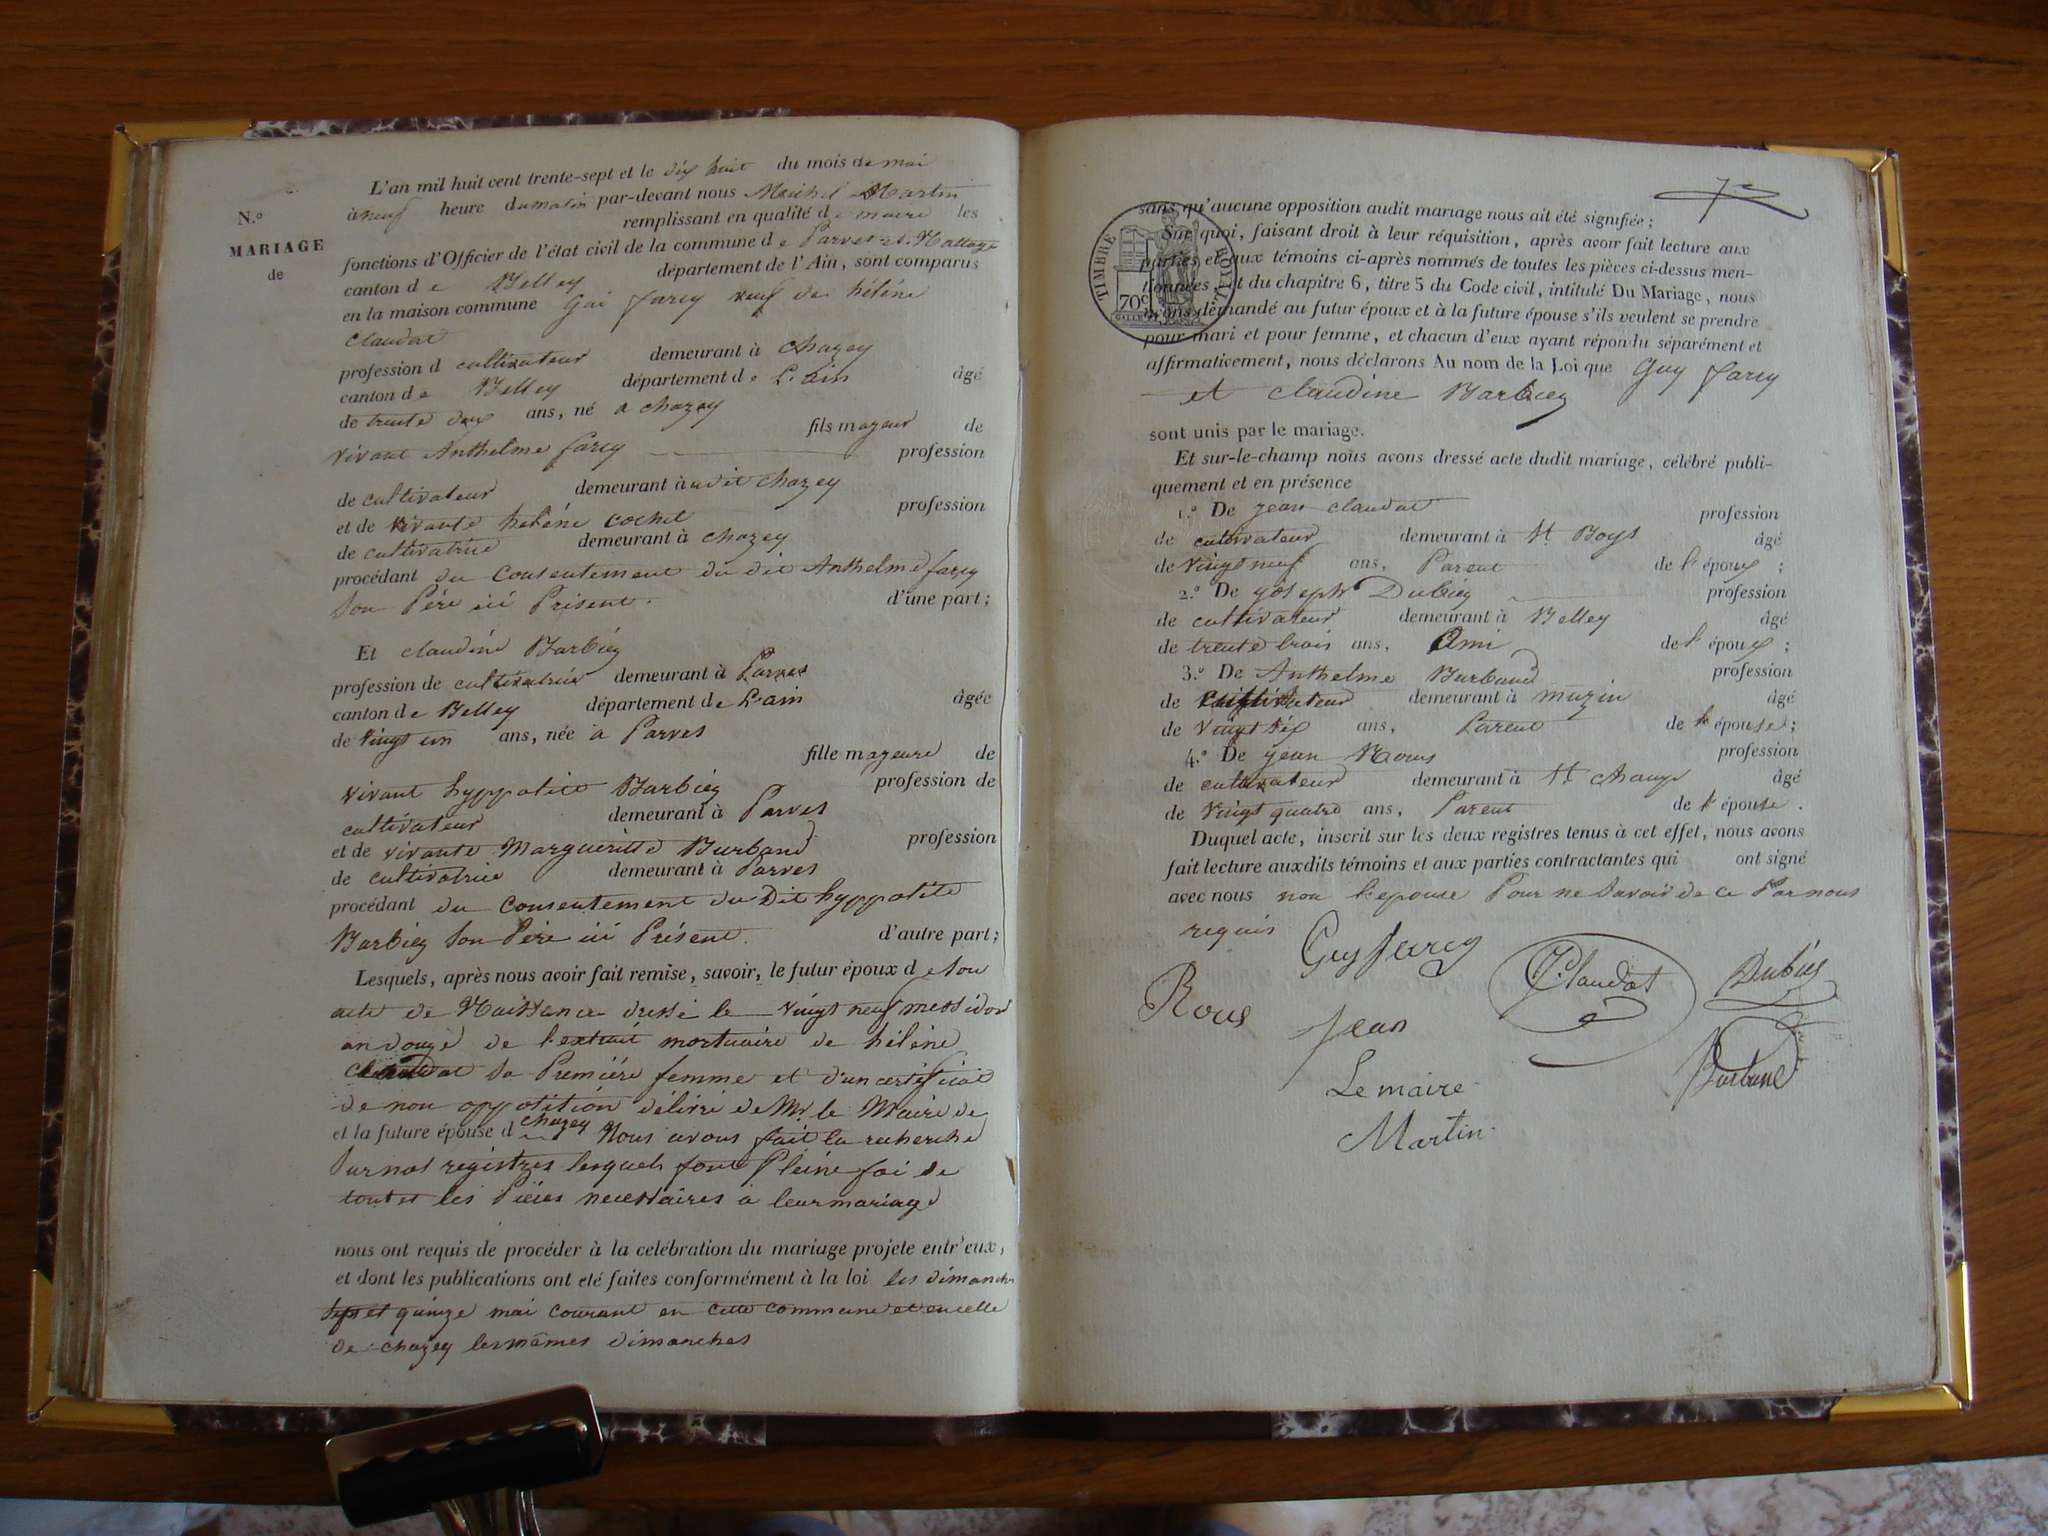 N.o
MARIAGE
de
L'an mil huit cent trente-sept et le dix huit du mois de mai
à neuf heure du matin par-devant nous Michel Martin
remplissant en qualité de maire les
fonctions d'Officier de l'état civil de la commune de Parves et Nattage
canton de Belley département de l'Ain, sont comparus
en la maison commune Gui farcy veuf de héléne
claudat
profession d cultivateur demeurant à Chazey
canton de Belley département de L'ain âgé
de trente deux ans, né a chazey
fils majeur de
vivant Anthelme farcy profession
de cultivateur demeurant à udit chazey
et de vivante héléne cochet profession
de cultivatrice demeurant à chazey
procédant du Consentement du dit Anthelme farcy
son Père ici Présent. d'une part;
Et claudine Barbiez
profession de cultivatrice demeurant à Parves
canton de Belley département de L'ain âgée
de vingt un ans, née à Parves
fille majeure de
vivant hyppolite Barbiez profession de
cultivateur demeurant à Parves
et de vivante Margueritte Burband profession
de cultivatrice demeurant à Parves
procédant du Consentement du Dit hyppolite
Barbiez son Père ici Présent. d'autre part;
Lesquels, après nous avoir fait remise, savoir, le futur époux de son
acte de Naissance dressé le vingt neuf messidor
an douze de l'extrait mortuaire de héléne
claudat sa Première femme et d'un certificat
de non opposition délivré de Mr le Maire de
chazey
et la future épouse d Nous avons fait la recherche
sur nos registres lesquels font Pleine foi de
toutes les Pièces necessaires à leur mariage
nous ont requis de procéder à la celébration du mariage projete entr'eux,
et dont les publications ont eté faites conformément à la loi les dimanches
sept et quinze mai courant en cette commune et en celle
de chazey les mêmes dimanches
TIMBRE ROYAL
70c
sans qu'aucune opposition audit mariage nous ait été signifiée;
Sur quoi, faisant droit à leur réquisition, après avoir fait lecture aux
parties et aux témoins ci-après nommés de toutes les pièces ci-dessus men-
tionnées, et du chapitre 6, titre 5 du Code civil, intitulé Du Mariage, nous
avons demandé au futur époux et à la future épouse s'ils veulent se prendre
pour mari et pour femme, et chacun d'eux ayant répondu séparément et
affirmativement, nous déclarons Au nom de la Loi que Guy farcy
et claudine Barbiez
sont unis par le mariage.
Et sur-le-champ nous avons dressé acte dudit mariage, célébré publi-
quement et en présence
1.o De jean claudat profession
de cultivateur demeurant à St Boys âgé
de vingt neuf ans, Parent de l'époux;
2.o De joseph Dubiez profession
de cultivateur demeurant à Belley âgé
de trente trois ans, Ami de l'époux;
3.o De Anthelme Burband profession
de cultivateur demeurant à muzin âgé
de vingt six ans, Parent de l'épouse;
4.o De jean Rous profession
de cultivateur demeurant à St champ âgé
de vingt quatre ans, Parent de l'épouse.
Duquel acte, inscrit sur les deux registres tenus à cet effet, nous avons
fait lecture auxdits témoins et aux parties contractantes qui ont signé
avec nous non l'epouse Pour ne Savoir de ce Par nous
requis
Guy farcy
J. Claudat
Dubiez
Rous
Jean
Burband
Le maire
Martin